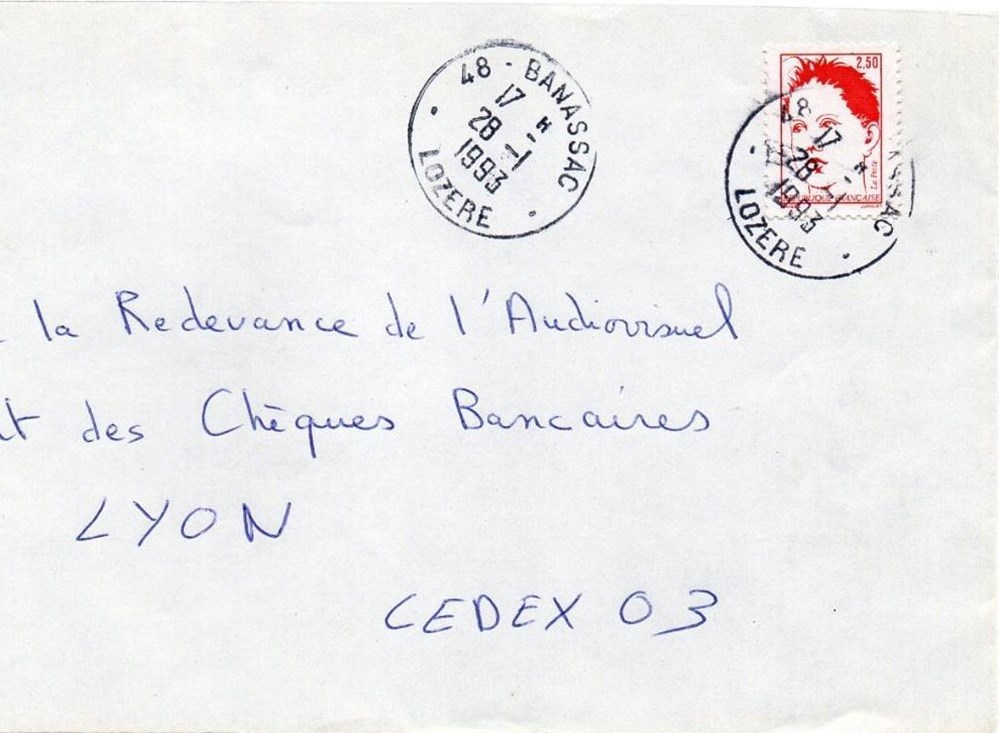 48 - BANASSAC
17 H
28 -1
1993
LOZERE
2,50
48
17 H
28 -1
1993
LOZERE
RÉPUBLIQUE FRANÇAISE
la Redevance de l'Audiovisuel
des Chèques Bancaires
LYON
CEDEX 03